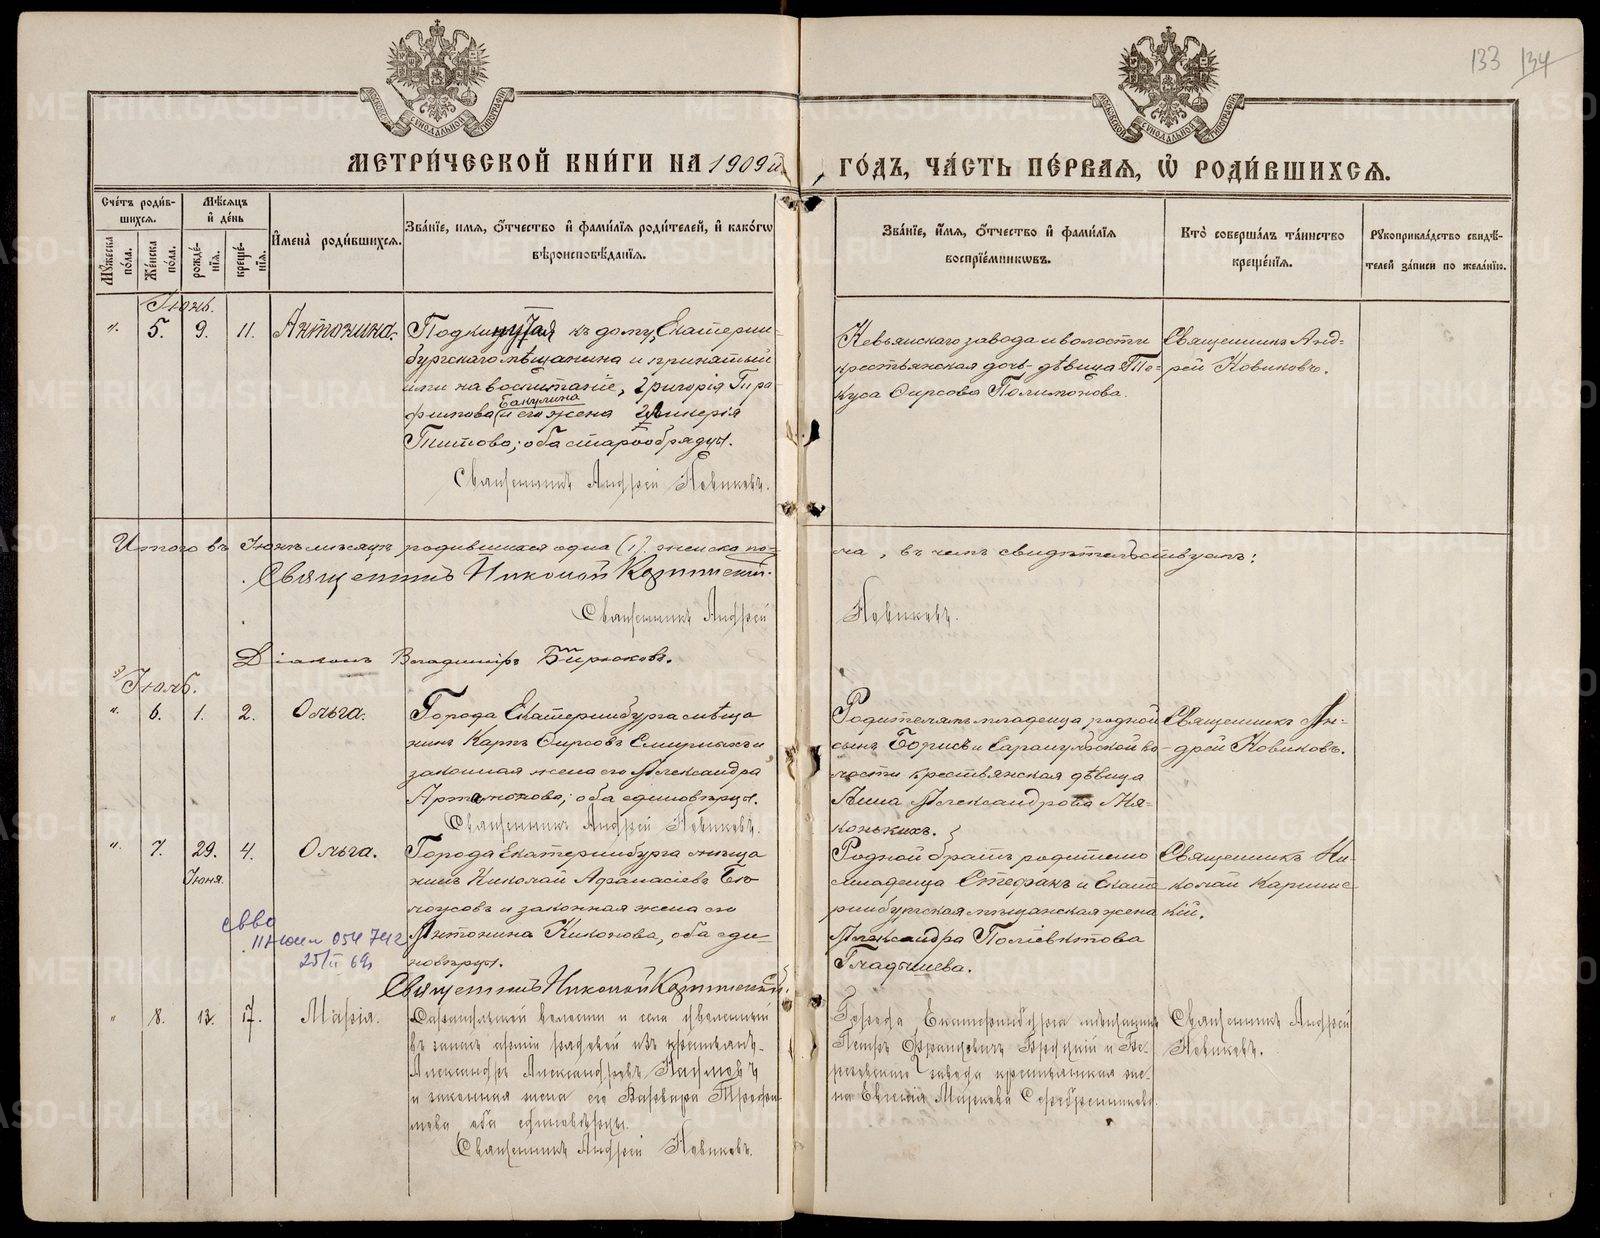 133 134
МЕТРИ́ЧЕСКОЙ КНИ́ГИ НА 1909й ГО́ДЪ, ЧА́СТЬ ПЕ́РВАЯ, Ѽ РОДИ́ВШИХСЯ.
Сче́тъ роди́вшихся.
Мѣ́сяцъ и҆ де́нь
Му́жеска по́ла.
Же́нска по́ла.
рожде́нїя.
креще́нїя.
И҆мена̀ роди́вшихся.
Зва́нїе, и҆́мя, ѻ҆́тчество и҆ фами́лїя роди́телей, и҆ како́гѡ вѣроисповѣ́данїя.
Зва́нїе, и҆́мя, ѻ҆́тчество и҆ фами́лїя воспрїе́мникѡвъ.
Кто̀ соверша́лъ та́инство креще́нїя.
Рꙋкоприкла́дство свидѣ́телей за́писи по жела́нїю.
Іюнь.
". 5. 9. 11. Антонина.
Подкинутая къ дому, Екатерин-
бургскаго мѣщанина и принятый
ими на воспитаніе, Григорія
Бакулина
и его жена Гликерія
Титова; оба старообрядцы.
Священникъ Андрей Новиковъ.
Невьянскаго завода и волости
крестьянская дочь-дѣвица
Фирсова
Священникъ Анд-
рей Новиковъ.
Итого въ Іюнѣ мѣсяцѣ родившихся одна (1). женска по-
ла, въ чемъ свидѣтельствуемъ:
Священникъ Николай
Священникъ Андрей Новиковъ.
Діаконъ Владиміръ Бирюковъ.
Іюль.
". 6. 1. 2. Ольга.
Города Екатеринбурга мѣща-
нинъ Карпъ Фирсовъ Смирныхъ и
законная жена его Александра
Артамонова; оба единовѣрцы.
Священникъ Андрей Новиковъ.
Родителямъ младенца родной
сынъ Борисъ и Сарапульской во-
лости крестьянская дѣвица
Анна Александрова Мя-
конькихъ.
Священникъ Ан-
дрей Новиковъ.
". 7. 29. Іюня. 4. Ольга.
Города Екатеринбурга мѣща-
нинъ Николай Афанасіевъ Бѣ-
лоусовъ и законная жена его
Антонина Никонова, оба еди-
новѣрцы.
Священникъ Николай
Родной братъ родителю
младенца Стефанъ и Екате-
ринбургская мѣщанская жена
Александра Поліевктова
Гладышева.
Священникъ Ни-
колай
25/II 69г
" 8. 13. 17. Марія.
волости и села
въ запас арміи рядовой изъ крестьянъ-
Александръ Александровъ
и законная жена его Варвара Трофи-
мова оба единовѣрцы.
Священникъ Андрей Новиковъ.
Города Екатеринбурга мѣщанинъ
Петръ и Бе-
резовскаго завода крестьянская же-
на Евгенія Маркова Серебренникова.
Священникъ Андрей
Новиковъ.
METRIKI.GASO-URAL.RU